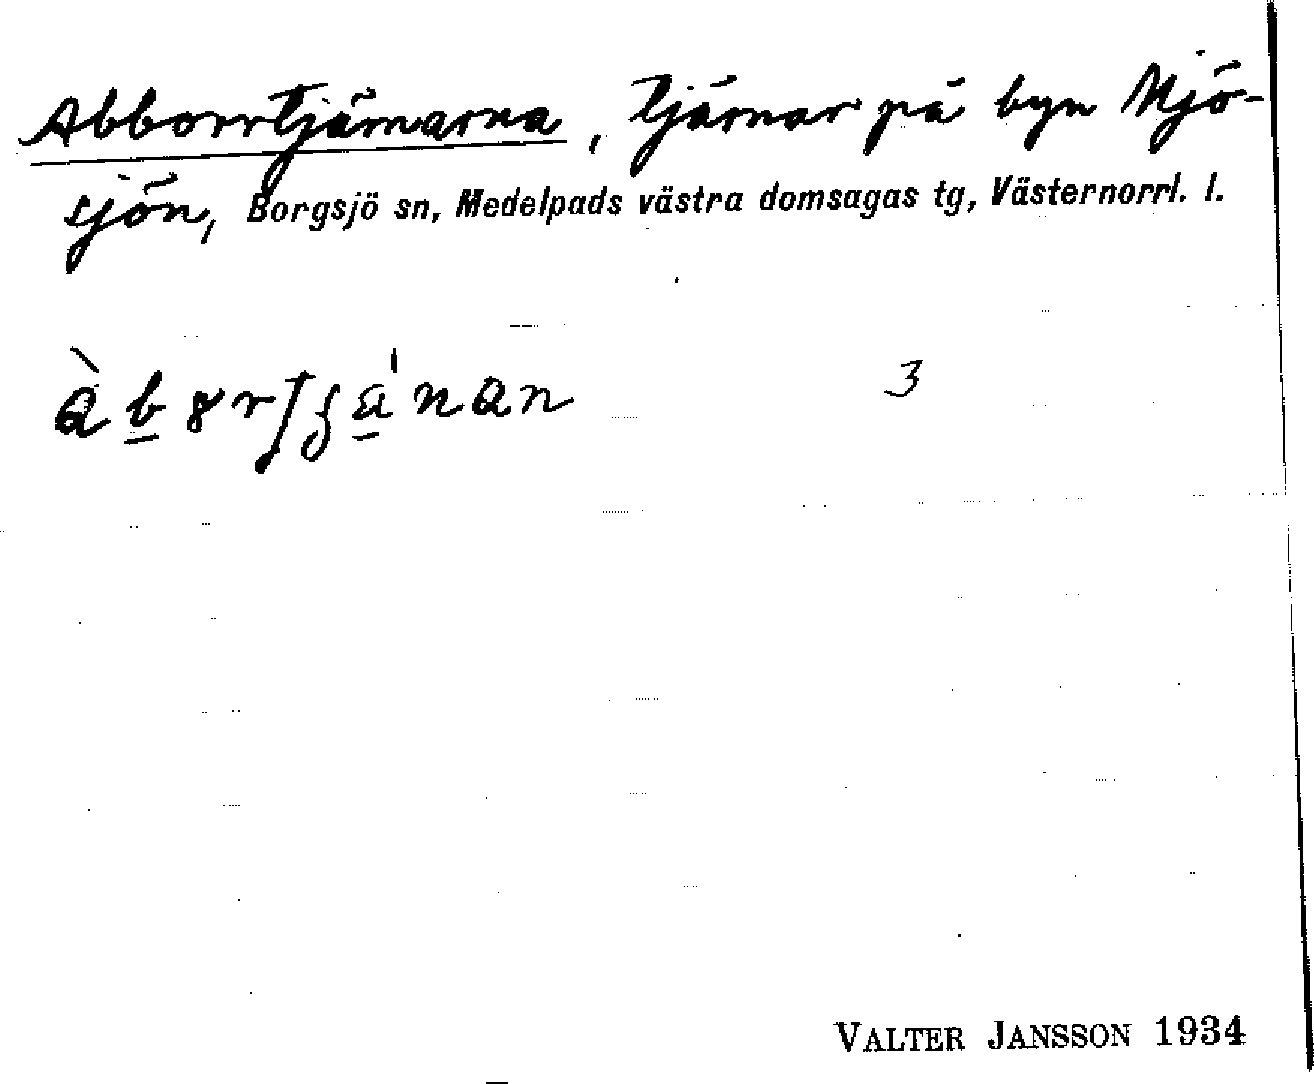 Abborrtjärnarna, Tjärnar på byn Mjö-
sjön, Borgsjö sn, Medelpads västra domsagas tg, Västernorrl. l.
3
VALTER JANSSON 1934